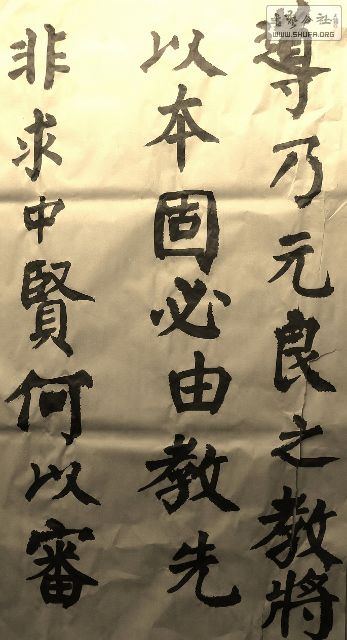 導乃元良之教將
以本固必由教先
非求中賢何以審
書藝公社
WWW.SHUFA.ORG